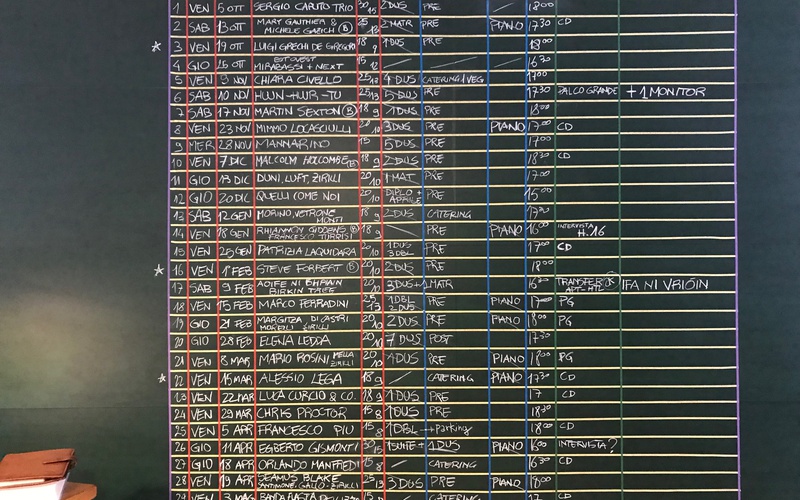 1 VEN 5 OTT SERGIO CAPUTO TRIO 30/15 2DUS PRE 18:00
2 SAB 13 OTT MARY GAUTHIER & MICHELE GAZICH (B) 25 2MATR PRE PIANO 17:30 CD
3 VEN 19 OTT LUIGI GRECHI DE GREGORI 18/9 1DUS PRE 18:00
4 GIO MIRABASSI + NEXT 15/12 16:30
5 VEN 9 NOV CHIARA CIVELLO 4 DUS CATERING/VEG 17:00
6 SAB 10 NOV HUUN-HUUR-TU 25 5 DUS PRE 17:30 PALCO GRANDE + 1 MONITOR
7 SAB 17 NOV MARTIN SEXTON (B) 18/9 1DUS PRE 18:00
8 VEN 23 NOV MIMMO LOCASCIULLI 20/10 3DUS PRE PIANO 17:00 CD
9 MER 28 NOV MANNARINO 15 5DUS PRE 17:00
10 VEN 7 DIC MALCOLM HOLCOMBE (B) 18/9 2DUS PRE 18:30 CD
11 GIO 13 DIC DUNI, LUFT, ZIRILLI 20/10 1 MAT PRE 17:00
12 GIO 20 DIC QUELLI COME NOI 20/10 DIPLO + APRILE PRE 15:00
13 SAB 12 GEN MORINO, VETRONE MONTI 18/9 2DUS CATERING 17:30
14 VEN 18 GEN RHIANNON GIDDENS (B) FRANCESCO TURRISI 18/9 PRE PIANO 16:00 INTERVISTA H.16
15 VEN 25 GEN PATRIZIA LAQUIDARA 20/10 1DUS 3DBL PRE 17:00 CD
16 VEN 1° FEB STEVE FORBERT (B) 20/10 2DUS PRE 18:00
17 SAB 9 FEB AOIFE NI BHRIAIN 20/12 3DUS+1MATR PRE 16:30 TRANSFER IFA NI VRIÓIN
18 VEN 15 FEB MARCO FERRADINI 25/13 1DBL 2DUS PRE PIANO 17:00 PG
19 GIO 21 FEB MORELLI ZIRILLI 20/10 2DUS PRE PIANO 18:00 PG
20 GIO 28 FEB ELENA LEDDA 20/10 7 DUS POST 17:30
21 VEN 8 MAR MARIO ROSINI MELLA ZIRILLI 20/10 1DUS PRE PIANO 18:00 PG
22 VEN 15 MAR ALESSIO LEGA 18/9 CATERING PIANO 17:30 CD
23 VEN 22 MAR LUCA CURCIO & CO. 18/9 1DUS PRE 17 CD
24 VEN 29 MAR CHRIS PROCTOR 15/8 1DUS PRE 18:30
25 VEN 5 APR FRANCESCO PIU 15/8 1DBL +parking 18:30 CD
26 GIO 11 APR EGBERTO GISMONTI 30/15 1SUITE + 1DUS PIANO 16:00 INTERVISTA?
27 GIO 18 APR ORLANDO MANFREDI 15/8 CATERING 16:30 CD
28 VEN 19 APR SEAMUS BLAKE SANTIMONE, GALLO, ZIRILLI 25/13 3DUS PRE PIANO 18:00
29 VEN 3 MAG CATERING 17 CD